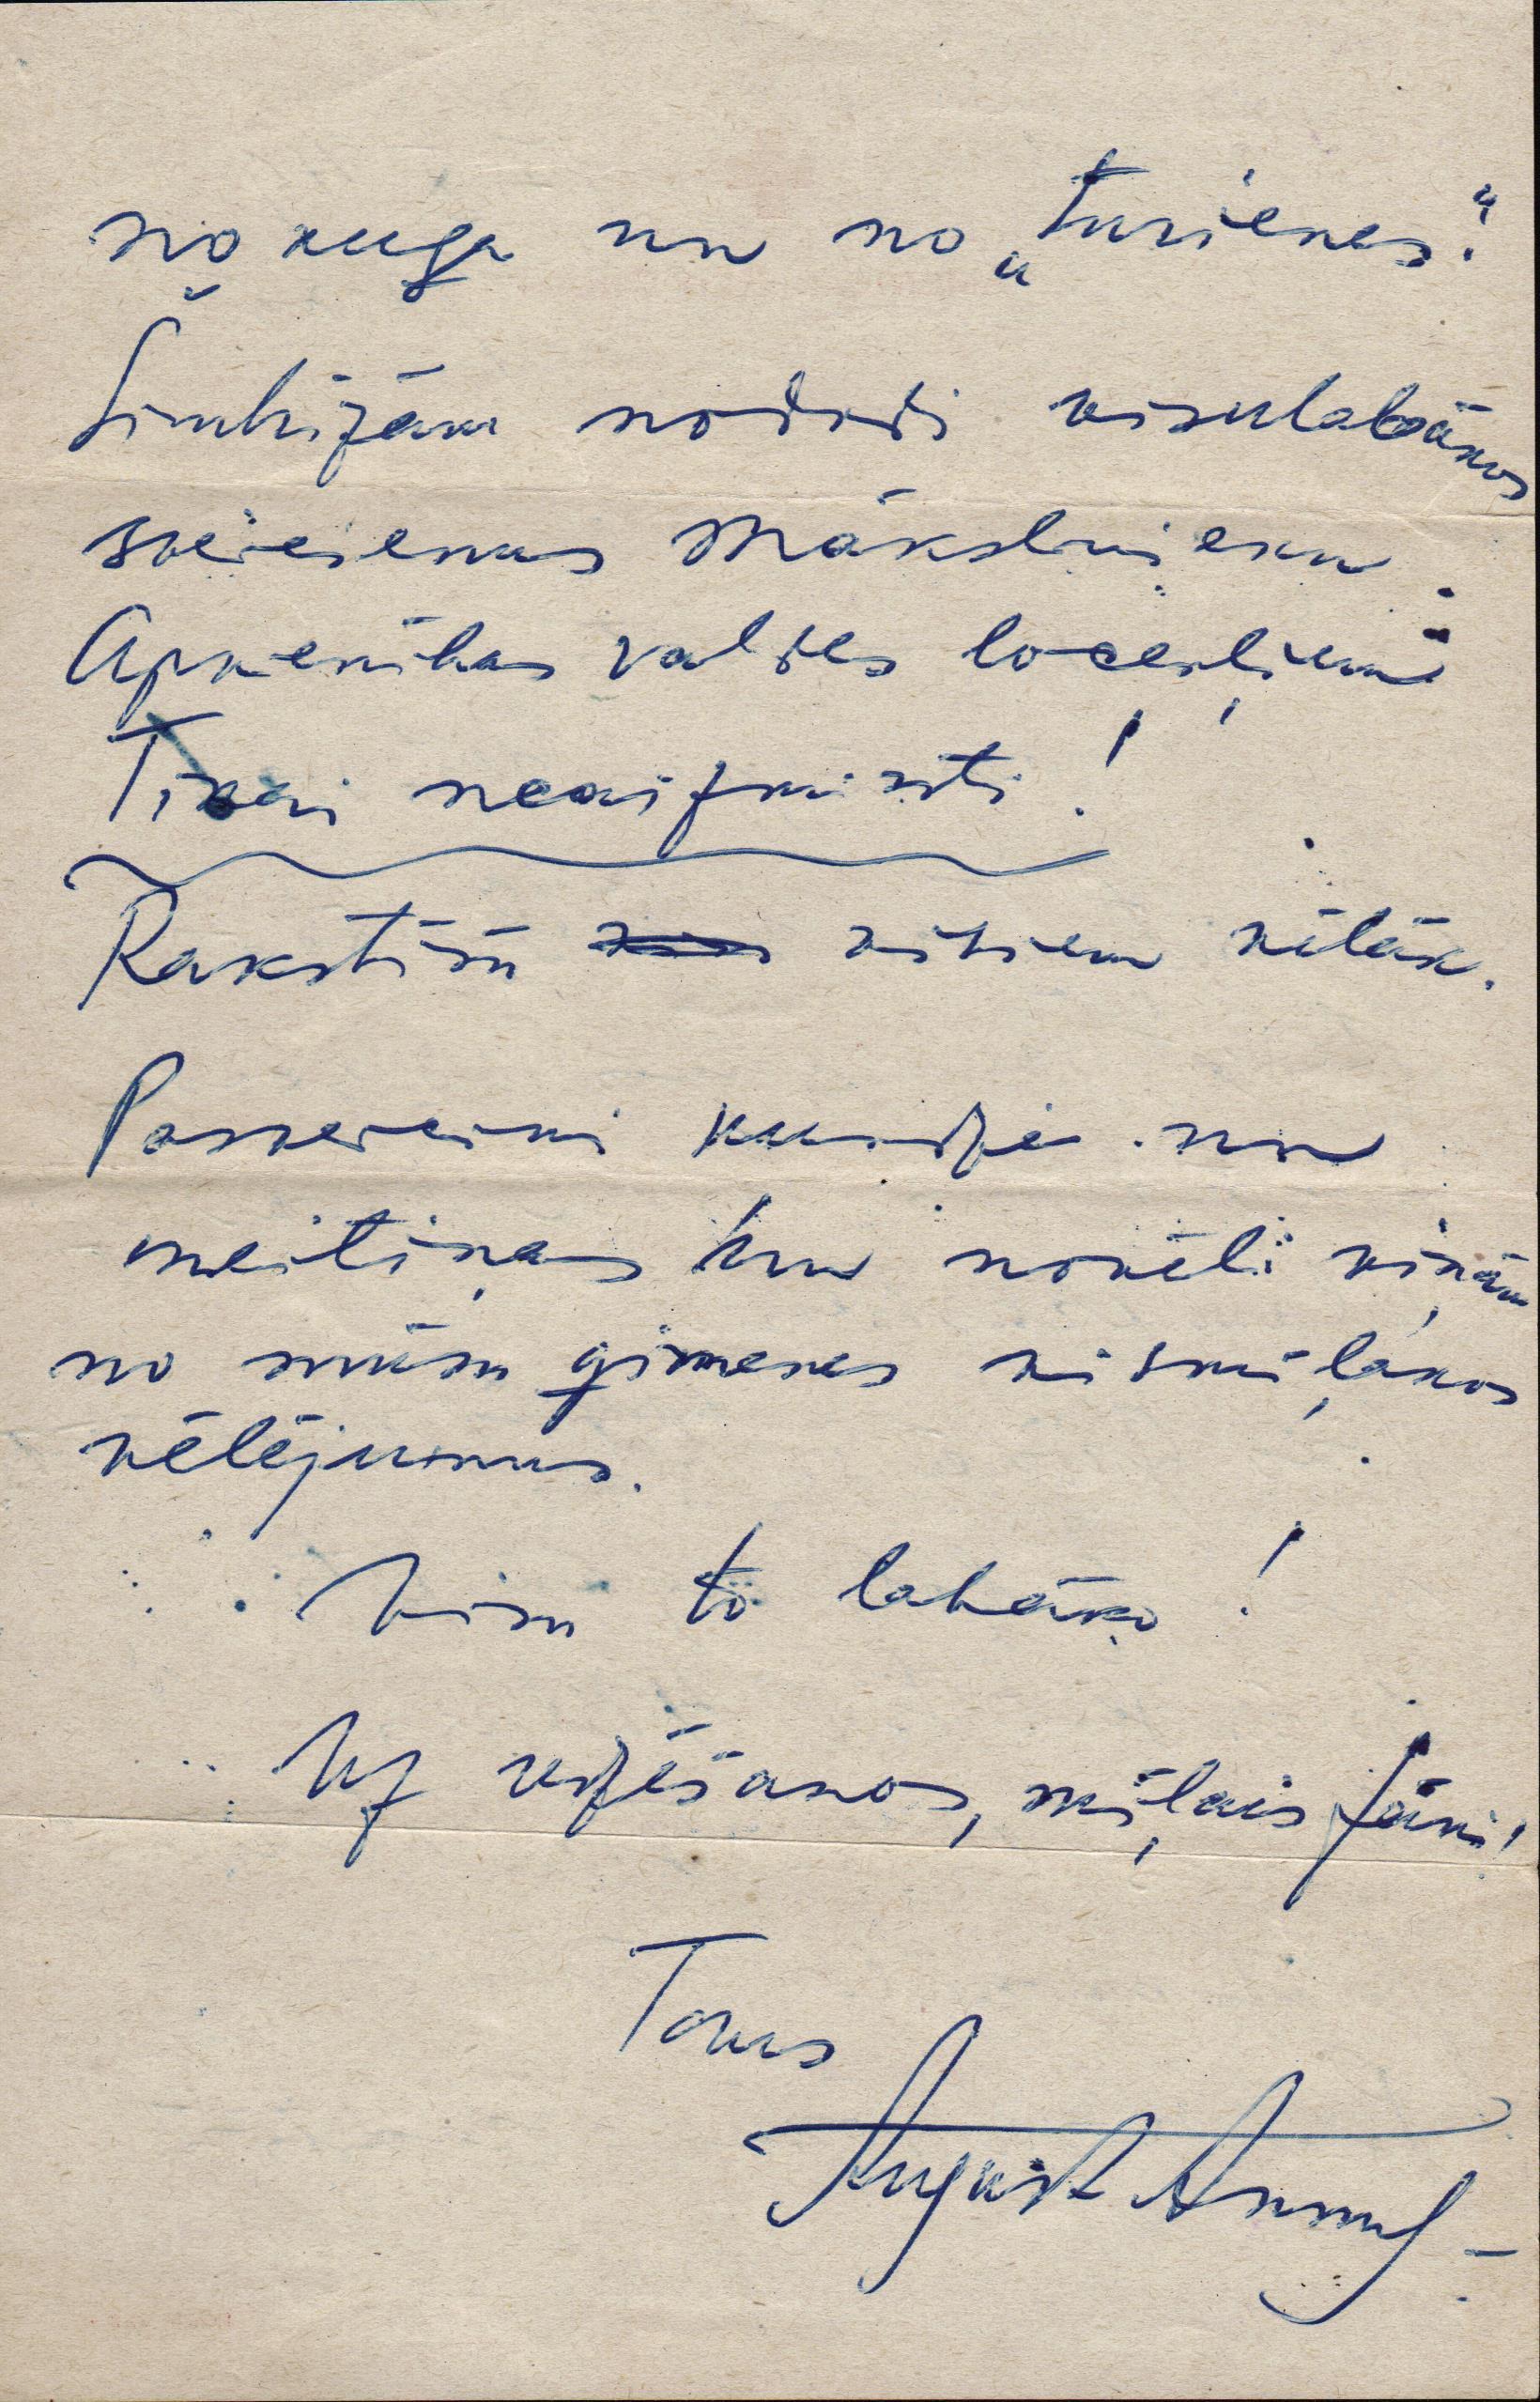 no kuģa un no „turienes".
Sirdsīgām nododi vislabākos
sveicienus Mākslinieku
Apvienības valdes locekļiem
Tikai neaizmirsti!
Rakstīšu visiem vēlāk.
Pasveicini kundzi un
meitiņas un novēli viņām
no mūsu ģimenes vismīļākos
vēlējumus.
Visu to labāko!
Uz redzēšanos, mīļais Jāni!
Tavs
August Annus